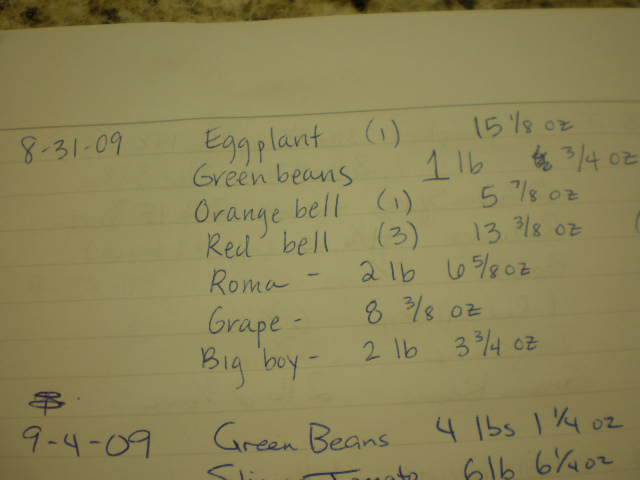 8-31-09 Eggplant (1) 15 1/8 oz
Green beans 1 lb 3/4 oz
Orange bell (1) 5 7/8 oz
Red bell (3) 13 3/8 oz
Roma - 2 lb 6 5/8 oz
Grape - 8 3/8 oz
Big boy - 2 lb 3 3/4 oz
9-4-09 Green Beans 4 lbs 1 1/4 oz
Tomato 6 lb 6 1/4 oz